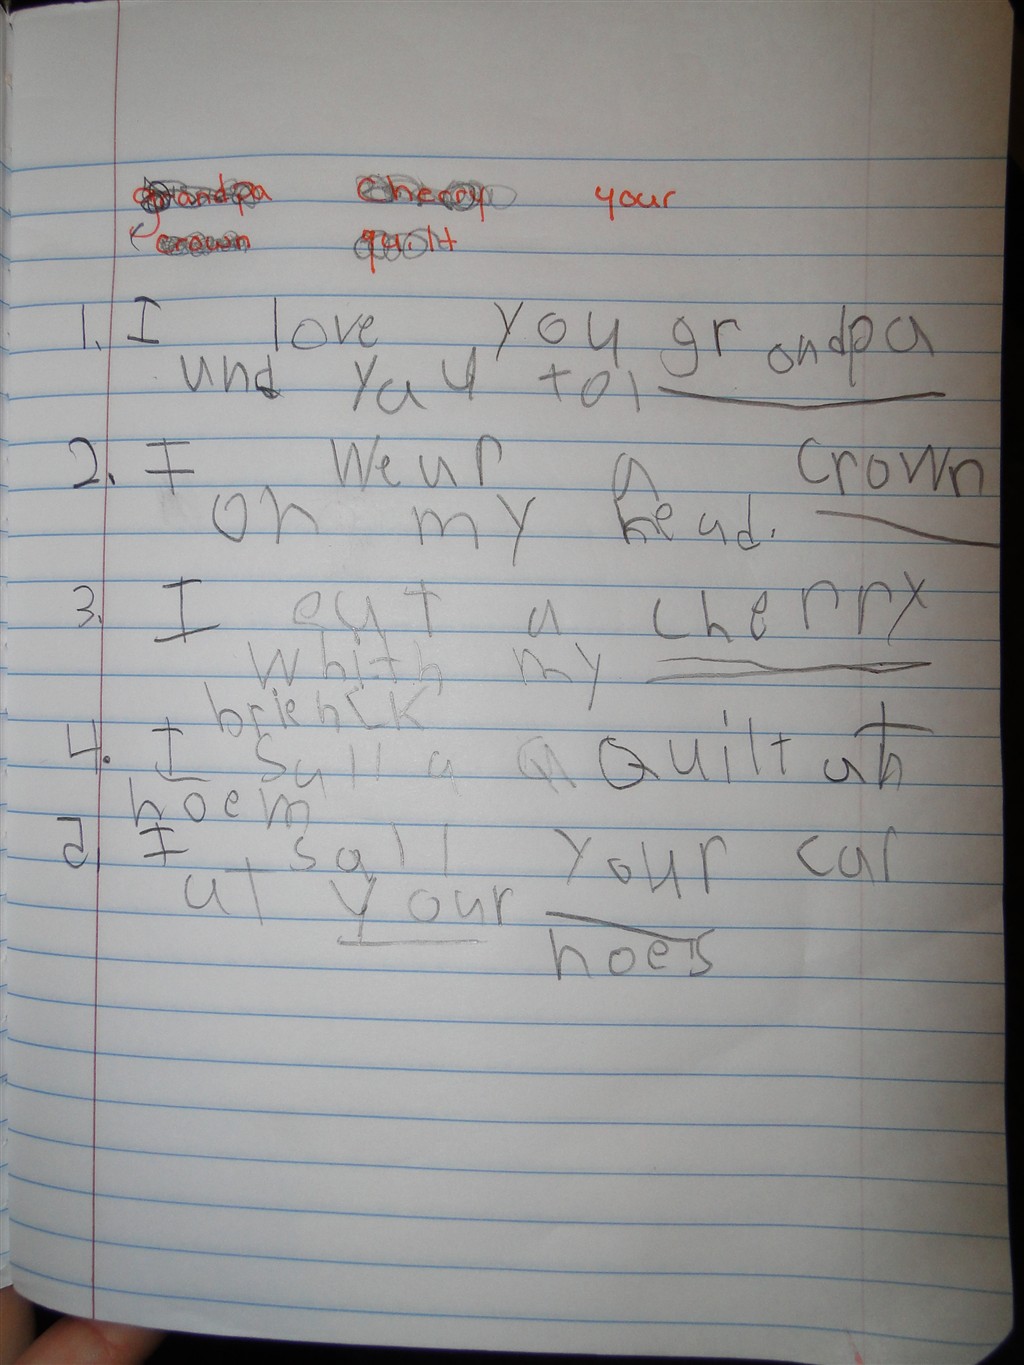 grandpa cherry your
crown quilt
1. I love you grondpa
und yau to
2. I weur a crown
on my head.
3. I eut a cherry
whith my
brienck
4. I sall a Quilt at
hoem
5. I sall your car
ut your
hoe's